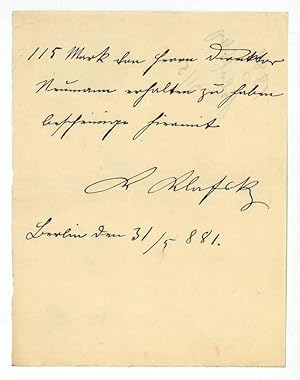 115 Mark von Herrn Direktor
Neumann erhalten zu haben
bescheinige hiermit
Klafsky
Berlin den 31/5 881.